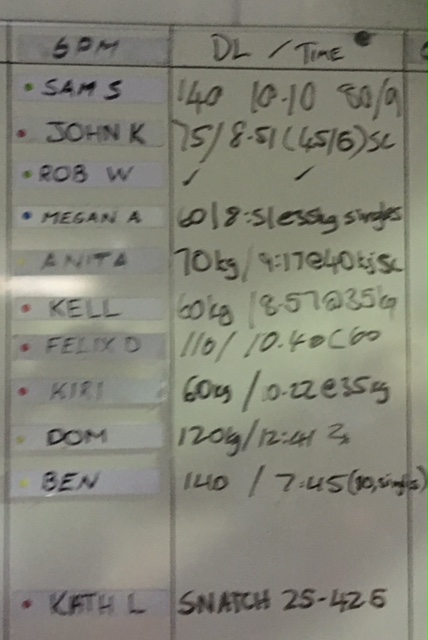 6PM DL / TIME
SAM S 140 10-10 80/9
JOHN K 75/8.51(45/6)SC
ROB W ✓ ✓
MEGAN A 60/8:51 singles
ANITA 70kg/9:17@40kg SC
KELL 60kg/8.57@35kg
FELIX D 110/10.40 60
KIRI 60kg/10.22@35kg
DOM 120kg/12:41
BEN 140 / 7:45(70,singles)
KATH L SNATCH 25-42.5